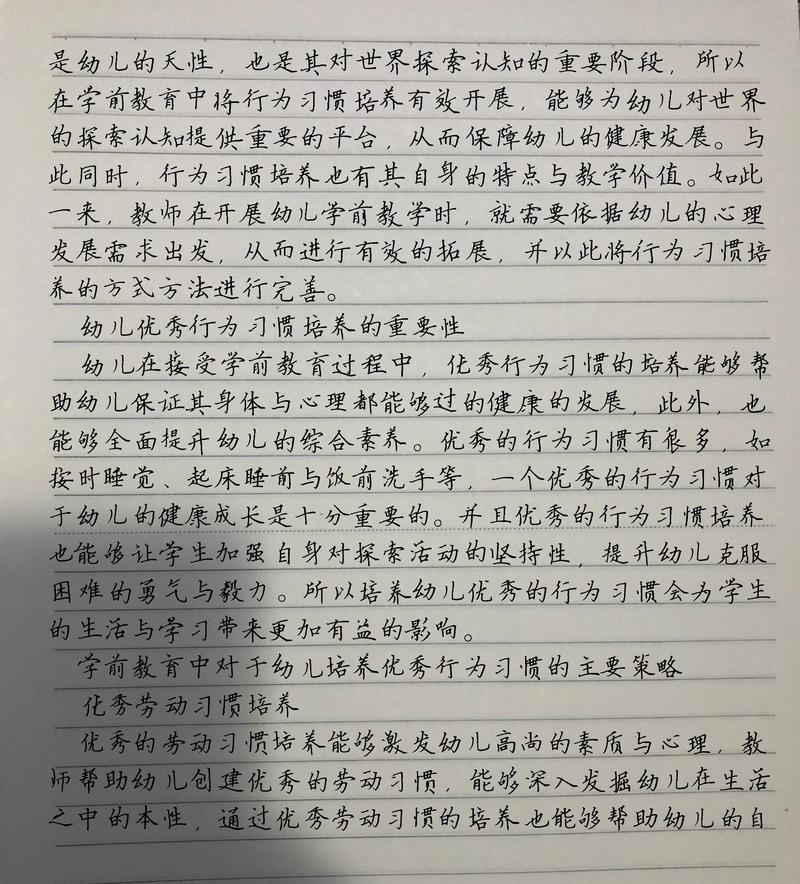 是幼儿的天性，也是其对世界探索认知的重要阶段，所以
在学前教育中将行为习惯培养有效开展，能够为幼儿对世界
的探索认知提供重要的平台，从而保障幼儿的健康发展。与
此同时，行为习惯培养也有其自身的特点与教学价值。如此
一来，教师在开展幼儿学前教学时，就需要依据幼儿的心理
发展需求出发，从而进行有效的拓展，并以此将行为习惯培
养的方式方法进行完善。
幼儿优秀行为习惯培养的重要性
幼儿在接受学前教育过程中，优秀行为习惯的培养能够帮
助幼儿保证其身体与心理都能够过的健康的发展，此外，也
能够全面提升幼儿的综合素养。优秀的行为习惯有很多，如
按时睡觉、起床睡前与饭前洗手等，一个优秀的行为习惯对
于幼儿的健康成长是十分重要的。并且优秀的行为习惯培养
也能够让学生加强自身对探索活动的坚持性，提升幼儿克服
困难的勇气与毅力。所以培养幼儿优秀的行为习惯会为学生
的生活与学习带来更加有益的影响。
学前教育中对于幼儿培养优秀行为习惯的主要策略
优秀劳动习惯培养
优秀的劳动习惯培养能够激发幼儿高尚的素质与心理，教
师帮助幼儿创建优秀的劳动习惯，能够深入发掘幼儿在生活
之中的本性，通过优秀劳动习惯的培养也能够帮助幼儿的自